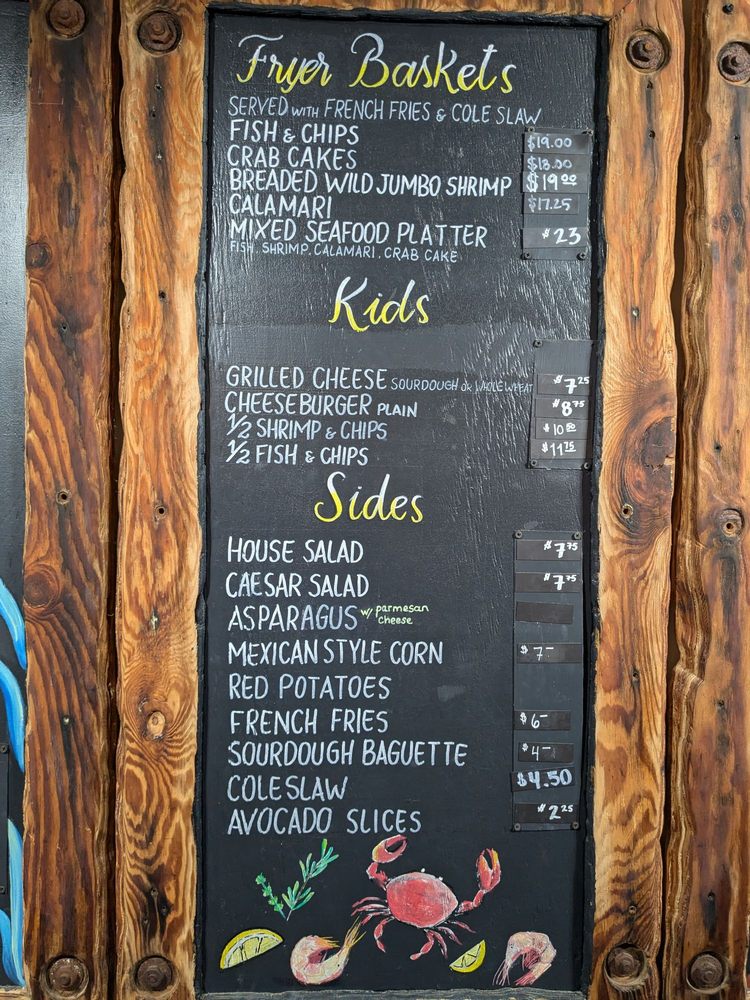 Fryer Baskets
SERVED WITH FRENCH FRIES & COLE SLAW
FISH & CHIPS $19.00
CRAB CAKES $18.00
BREADED WILD JUMBO SHRIMP $19.00
CALAMARI $17.25
MIXED SEAFOOD PLATTER $23
FISH. SHRIMP. CALAMARI. CRAB CAKE
Kids
GRILLED CHEESE SOURDOUGH OR WHOLE WHEAT $7.25
CHEESEBURGER PLAIN $8.75
1/2 SHRIMP & CHIPS $10.50
1/2 FISH & CHIPS $11.75
Sides
HOUSE SALAD $7.75
CAESAR SALAD $7.75
ASPARAGUS w/ parmesan cheese
MEXICAN STYLE CORN $7-
RED POTATOES
FRENCH FRIES $6-
SOURDOUGH BAGUETTE $4-
COLESLAW $4.50
AVOCADO SLICES $2.25